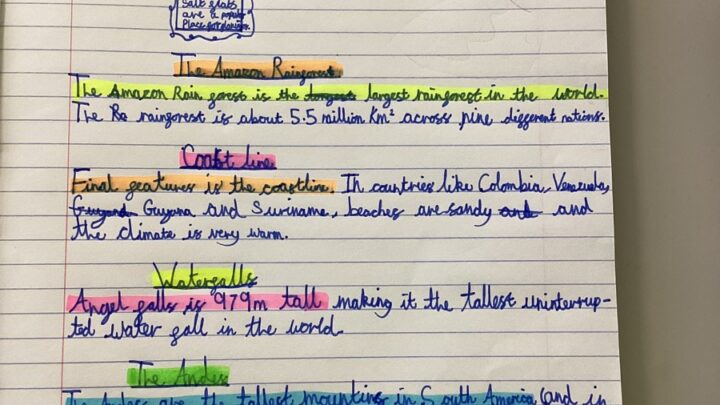 Salt flats
are a popular
Place for tourism.
The Amazon Rainforest
The Amazon Rain forest is the largest rainforest in the world.
The rainforest is about 5.5 million Km² across nine different nations.
Coast line
Final features is the coastline. In countries like Colombia, Venezuela,
Guyana and Suriname, beaches are sandy and
the climate is very warm.
Waterfalls
Angel falls is 979m tall making it the tallest uninterrup-
ted water fall in the world.
The Andes
The Andes are the tallest mountins in South America (and in